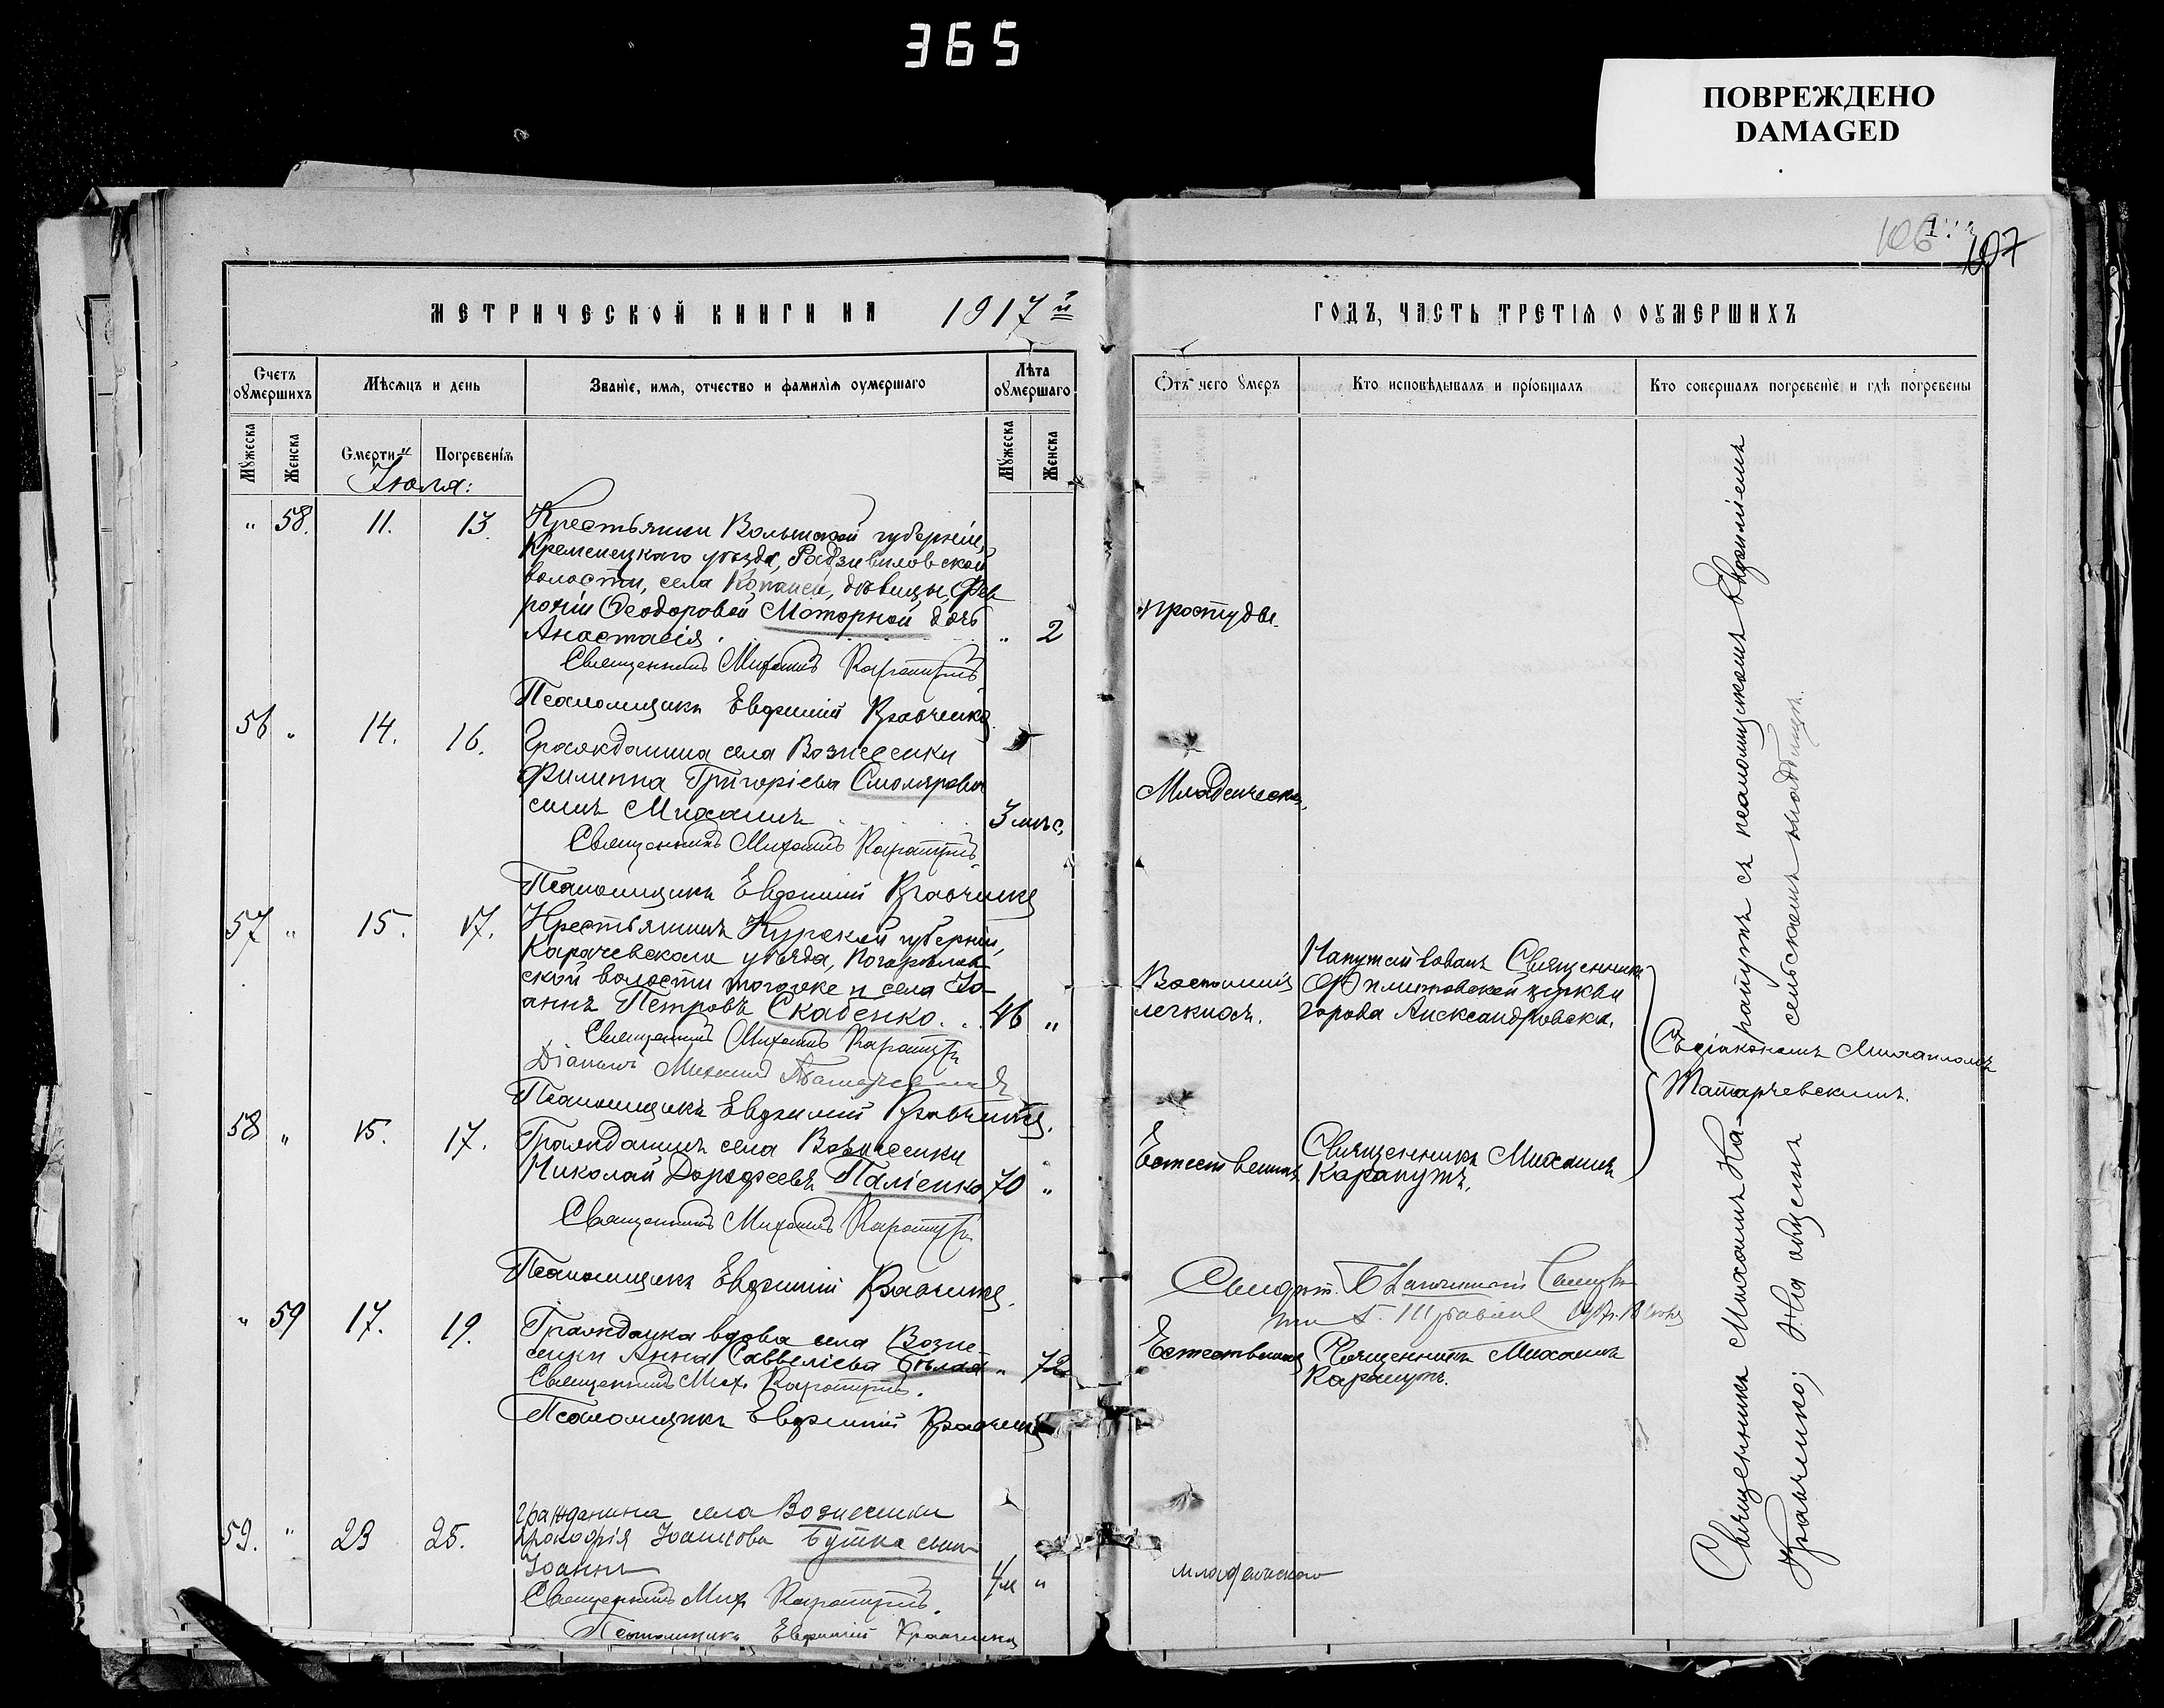 365
ПОВРЕЖДЕНО
DAMAGED
106
107
МЕТРИЧЕСКОЙ КНИГИ НА 1917й
ГОДЪ, ЧАСТЬ ТРЕТІѦ О ОУМЕРШИХЪ
Счетъ оумершихъ
Мѣсѧцъ и день
Званіе, имѧ, отчество и фамиліѧ оумершаго
Лѣта оумершаго
Отъ чего оумеръ
Кто исповѣдывалъ и пріобщалъ
Кто совершалъ погребеніе и гдѣ погребены
Мужеска
Женска
Смерти
Погребеніѧ
Мужеска
Женска
Іюля:
" 58. 11. 13.
Крестьянки Волынской губерніи,
Кременецкаго уѣзда, Радзивиловской
волости, села Копани, дѣвицы Фев
роніи Ѳеодоровой Моторной дочь
Анастасія. " 2
простуды.
Священникъ Михаилъ Карапутъ
Псаломщикъ Евфимій Кравченко
56 " 14. 16.
Гражданина села Вознесенки
Филиппа Григоріева Смолярова
сынъ Михаилъ 3 мѣс.
Младенческ.
Священникъ Михаилъ Карапутъ
Псаломщикъ Евфимій Кравченко
57 " 15. 17.
Крестьянинъ Курской губерніи,
Карачевскаго уѣзда,
ской волости того же и села Іо-
аннъ Петровъ Скабенко. 46 "
Воспаленія
легкихъ.
Напутствованъ Священник
церкви
города Александровска.
Священникъ Михаилъ Карапутъ
Діаконъ Михаилъ Татарчевскій
Псаломщикъ Евфимій Кравченко.
Съ діакономъ Михаиломъ
Татарчевскимъ.
58 " 15. 17.
Гражданинъ села Вознесенки
Николай Дороѳеевъ Паліенко 70 "
Естественно
Священникъ Михаилъ
Карапутъ.
Священникъ Михаилъ Карапутъ
Псаломщикъ Евфимій Кравченко.
" 59 17. 19.
Гражданка вдова села Возне-
сенки Анна Савеліева Бѣлая " 72
Естественно
Священникъ Михаилъ
Карапутъ.
Священникъ Мих. Карапутъ.
Псаломщикъ Евфимій Кравченко
59. " 23 25.
гражданина села Вознесенки
Прокофія Іоаннова Бутка сынъ
Іоаннъ 4 м "
младенческаго
Священникъ Мих. Карапутъ.
Псаломщикъ Евфимій Кравченко
Священникъ Михаилъ Ка-рапутъ съ псаломщикомъ Евфиміемъ
Кравченко; На общемъ сельскомъ кладбищѣ.